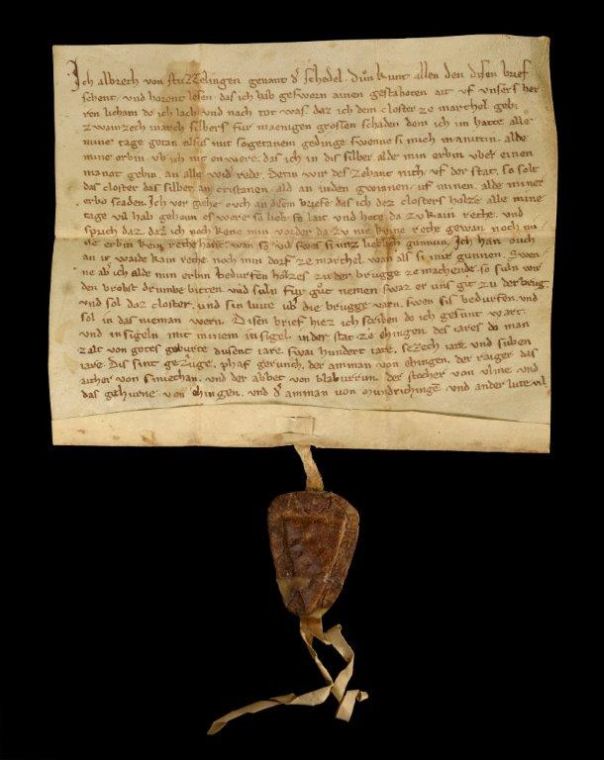 Ich albrech von stuzzelingen genant d schedel. Dun kunt allen den disen brief
sehent. vnd horont lesen. das ich hab gesworn ainen gestaboten ait vf vnsers her
ren licham do ich lach vnd nach tot was. daz ich dem closter ze marchel. gebi
zwainzech march silbers fur maenigen grossen schaden dem ich im hatte alle
mine tage getan. also mit sogetanem gedinge swenne si mich manntin. alde
mine erbin. vb ich nit en were. das ich in dis silber alde min erbin vber einen
manot gebin. an alle wid rede. Denn wir des zehant nich vf der stat. so solt
das closter das silber. an cristanen. ald an iuden gwinnen. vf minen. alde miner
erbo scaden. Ich vor gihe ovch an disem briefe das ich dez closters holze alle mine
tage vil hab gehoun es were so lieb. so lait vnd hete da zu kain rehte. vnd
sprich daz. daz ich noch kone min vordir da zu nie keine rehte gewan. noch mi
ne erbin kein rehte hant. wan so vil swes si vnz lieblich gunnin. Ich han ouch
an ir waide kain rehte. noch min dorf ze marchel. wan als si mir gunnen. Swen
ne ab ich alde min erbin bedurfen holzes zu der brugge ze machende. so suln wir
den brobst drumbe bitten. vnd suln fur gut nemen swaz er vns git zu der brug
vnd sol daz closter. vnd sin lute vb die brugge varn. swen sis bedurfen. vnd
sol in das nieman wern. Disen brief hiez ich scriben do ich gesunt wart.
vnd insigeln mit minem insigel. in der stat ze ehingen. des iares do man
zalt von gotes geburte dusent iare. swai hundert iare. sezech iare. vnd siben
iare. Dis sint gezuge. phaf gerunch. der amman von ehingen. der raiger das
aicher von simechan. vnd der abbet von blaburrun. der stocher von vlme. vnd
das gehurne von ehingen. vnd d amman von mundrichingen. vnd ander lute vil